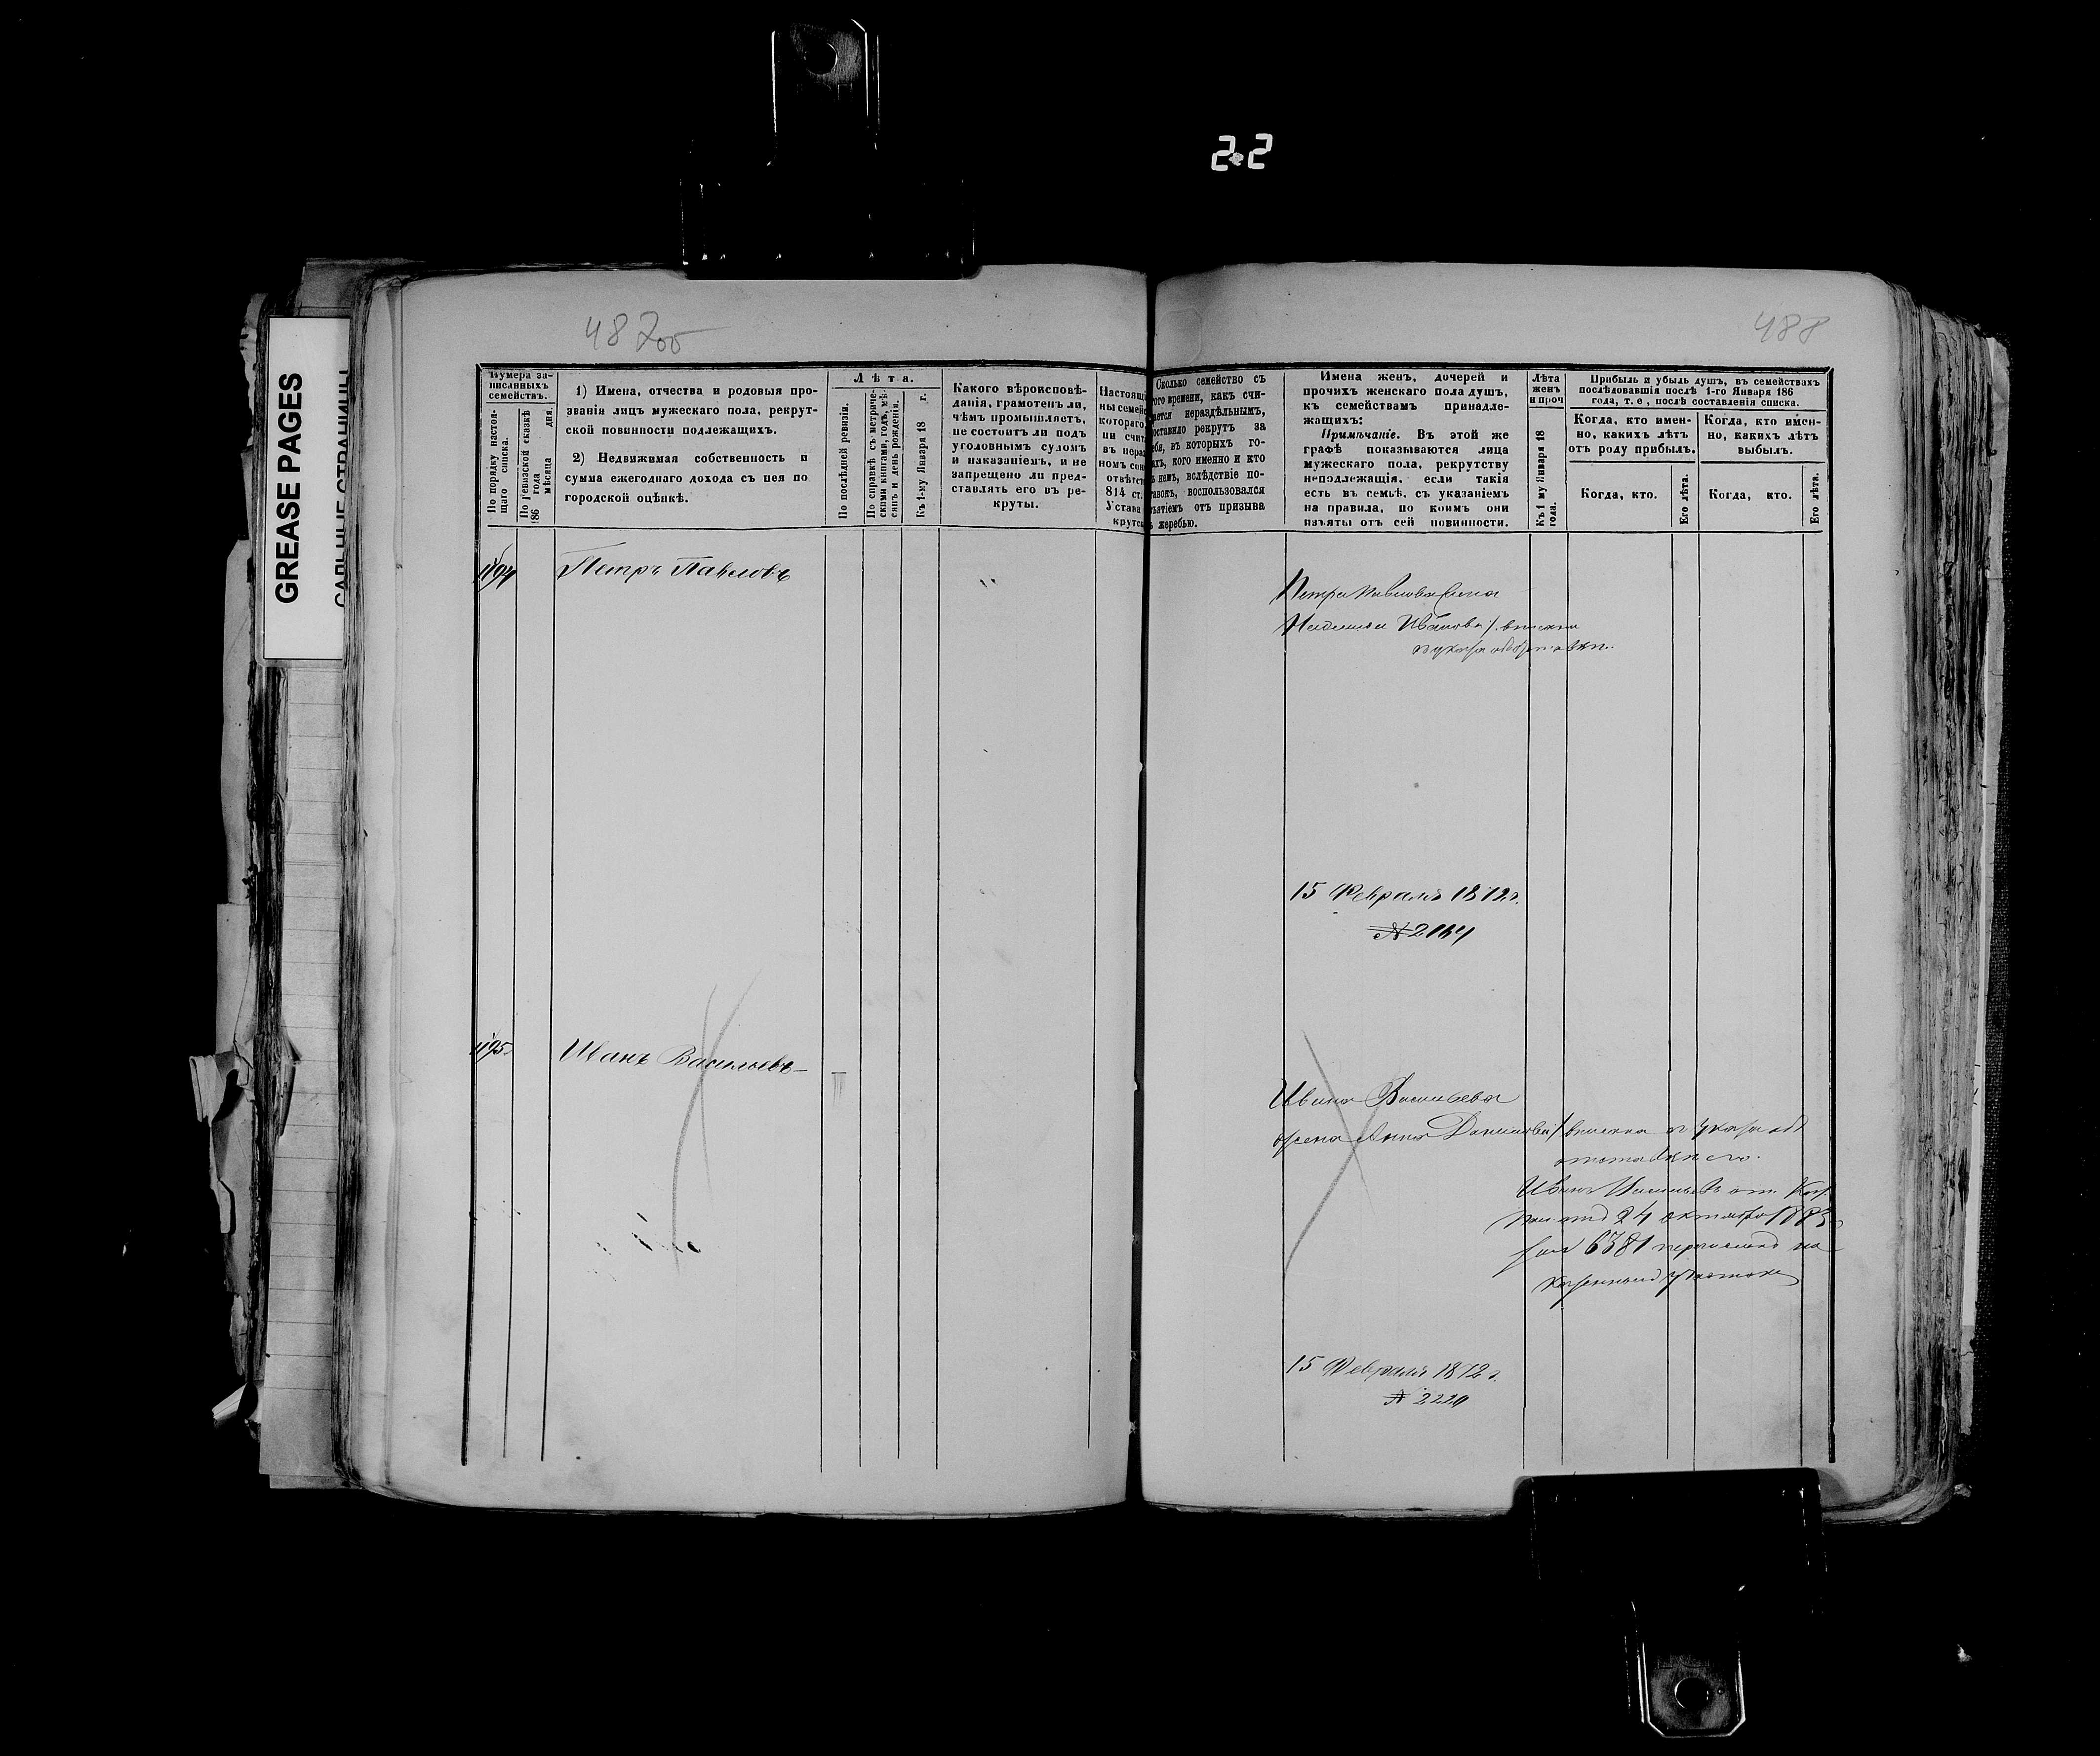 2.2
GREASE PAGES
САЛЬНЫЕ СТРАНИЦЫ
487об
488
Нумера за-
писанныхъ
семействъ.
По порядку настоя-
щаго списка.
По Ревизской сказкѣ
186 года мѣсяца дня.
1) Имена, отчества и родовыя про-
званія лицъ мужескаго пола, рекрут-
ской повинности подлежащихъ.
2) Недвижимая собственность и
сумма ежегоднаго дохода съ нея по
городской оцѣнкѣ.
Лѣта.
По послѣдней ревизіи.
По справкѣ съ метриче-
скими книгами, годъ, мѣ-
сяцъ и день рожденія.
Къ 1-му Января 18 г.
Какого вѣроисповѣ-
данія, грамотенъ ли,
чѣмъ промышляетъ,
не состоитъ ли подъ
уголовнымъ судомъ
и наказаніемъ, и не
запрещено ли пред-
ставлять его въ ре-
круты.
Настоящ
ны семе
котораго
ни счит
въ нераз
номъ со
отвѣтст
814 ст.
Устава
крутс
Сколько семейство съ
того времени, какъ счи-
тается нераздѣльнымъ,
поставило рекрутъ за
себя, въ которыхъ го-
дахъ, кого именно и кто
въ немъ, вслѣдствіе по-
ставокъ, воспользовался
изъятіемъ отъ призыва
жеребью.
Имена женъ, дочерей и
прочихъ женскаго пола душъ,
къ семействамъ принадле-
жащихъ:
Примѣчаніе. Въ этой же
графѣ показываются лица
мужескаго пола, рекрутству
неподлежащія, если такія
есть въ семьѣ, съ указаніемъ
на правила, по коимъ они
изъяты отъ сей повинности.
Лѣта
женъ
и проч
Къ 1 му Января 18
года.
Прибыль и убыль душъ, въ семействахъ
послѣдовавшія послѣ 1-го Января 186
года, т. е, послѣ составленія списка.
Когда, кто имен-
но, какихъ лѣтъ
отъ роду прибылъ.
Когда, кто имен-
но, какихъ лѣтъ
выбылъ.
Когда, кто.
Его лѣта.
Когда, кто.
Его лѣта.
1194
Петръ Павловъ
Петра Павлова жена
Иванова
15 Февраля 1872 г.
1195
Иванъ Васильевъ
Ивана Васильева
жена Анна
24 октября
6381
на
казенный участокъ
15 Февраля 1872 г.